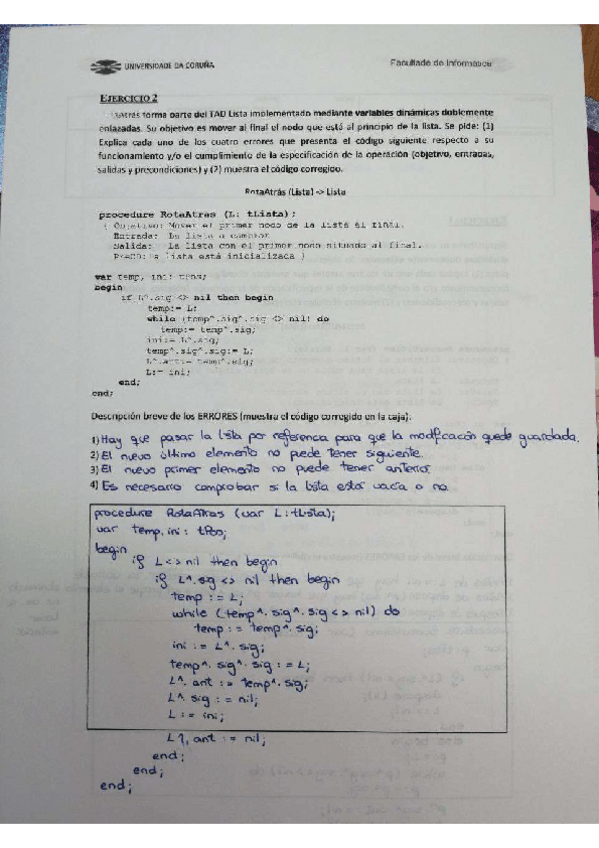 UNIVERSIDADE DA CORUÑA
Facultade de Informática
EJERCICIO 2
forma parte del TAD Lista implementado mediante variables dinámicas doblemente
enlazadas. Su objetivo es mover al final el nodo que está al principio de la lista. Se pide: (1)
Explica cada uno de los cuatro errores que presenta el código siguiente respecto a su
funcionamiento y/o el cumplimiento de la especificación de la operación (objetivo, entradas,
salidas y precondiciones) y (2) muestra el código corregido.
RotaAtrás (Lista) -> Lista
procedure RotaAtras (L: tLista);
{ Objetivo: Mover el primer nodo de la lista al final.
Entrada: La lista a cambiar
Salida: La lista con el primer nodo situado al final.
PreCD: La lista está inicializada }
var temp, ini: tPos;
begin
if L^.sig <> nil then begin
temp:= L;
while (temp^.sig^.sig <> nil) do
temp:= temp^.sig;
ini:= L^.sig;
temp^.sig^.sig:= L;
L^.ant:= temp^.sig;
L:= ini;
end;
end;
Descripción breve de los ERRORES (muestra el código corregido en la caja):
1) Hay que pasar la lista por referencia para que la modificación quede guardada.
2) El nuevo último elemento no puede tener siguiente.
3) El nuevo primer elemento no puede tener anterior.
4) Es necesario comprobar si la lista está vacía o no.
procedure RotaAtras (var L: tLista);
var temp, ini: tPos;
begin
if L <> nil then begin
if L^.sig <> nil then begin
temp := L;
while (temp^.sig^.sig <> nil) do
temp := temp^.sig;
ini := L^.sig;
temp^.sig^.sig := L;
L^.ant := temp^.sig;
L^.sig := nil;
L := ini;
L^.ant := nil;
end;
end;
end;